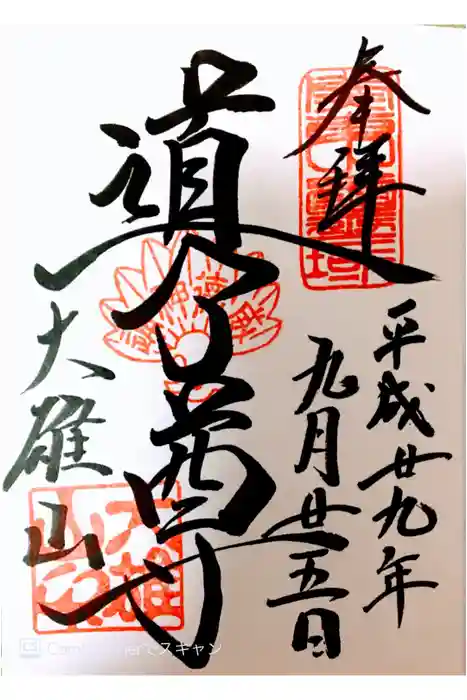 奉拝
平成廿九年
九月廿五日
道了尊
大雄山
でスキャン